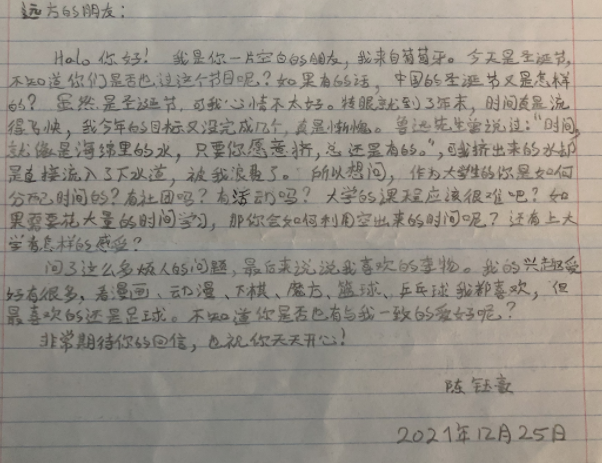 远方的朋友：
Halo 你好！ 我是你一片空白的朋友，我来自葡萄牙。今天是圣诞节，
不知道你们是否也过这个节日呢？如果有的话，中国的圣诞节又是怎样
的？虽然是圣诞节，可我心情不太好。转眼就到了年末，时间真是流
得飞快，我今年的目标又没完成几个，真是惭愧。鲁迅先生曾说过："时间，
就像是海绵里的水，只要你愿意挤，总还是有的。"，可我挤出来的水却
是直接流入了下水道，被我浪费了。所以想问，作为大学生的你是如何
分配时间的？有社团吗？有活动吗？大学的课程应该很难吧？如
果需要花大量的时间学习，那你会如何利用空出来的时间呢？还有上大
学有怎样的感受？
问了这么多烦人的问题，最后来说说我喜欢的事物。我的兴趣爱
好有很多，看漫画、动漫、下棋、魔方、篮球、乒乓球我都喜欢，但
最喜欢的还是足球。不知道你是否也有与我一致的爱好呢？
非常期待你的回信，也祝你天天开心！
陈钰
2021年12月25日